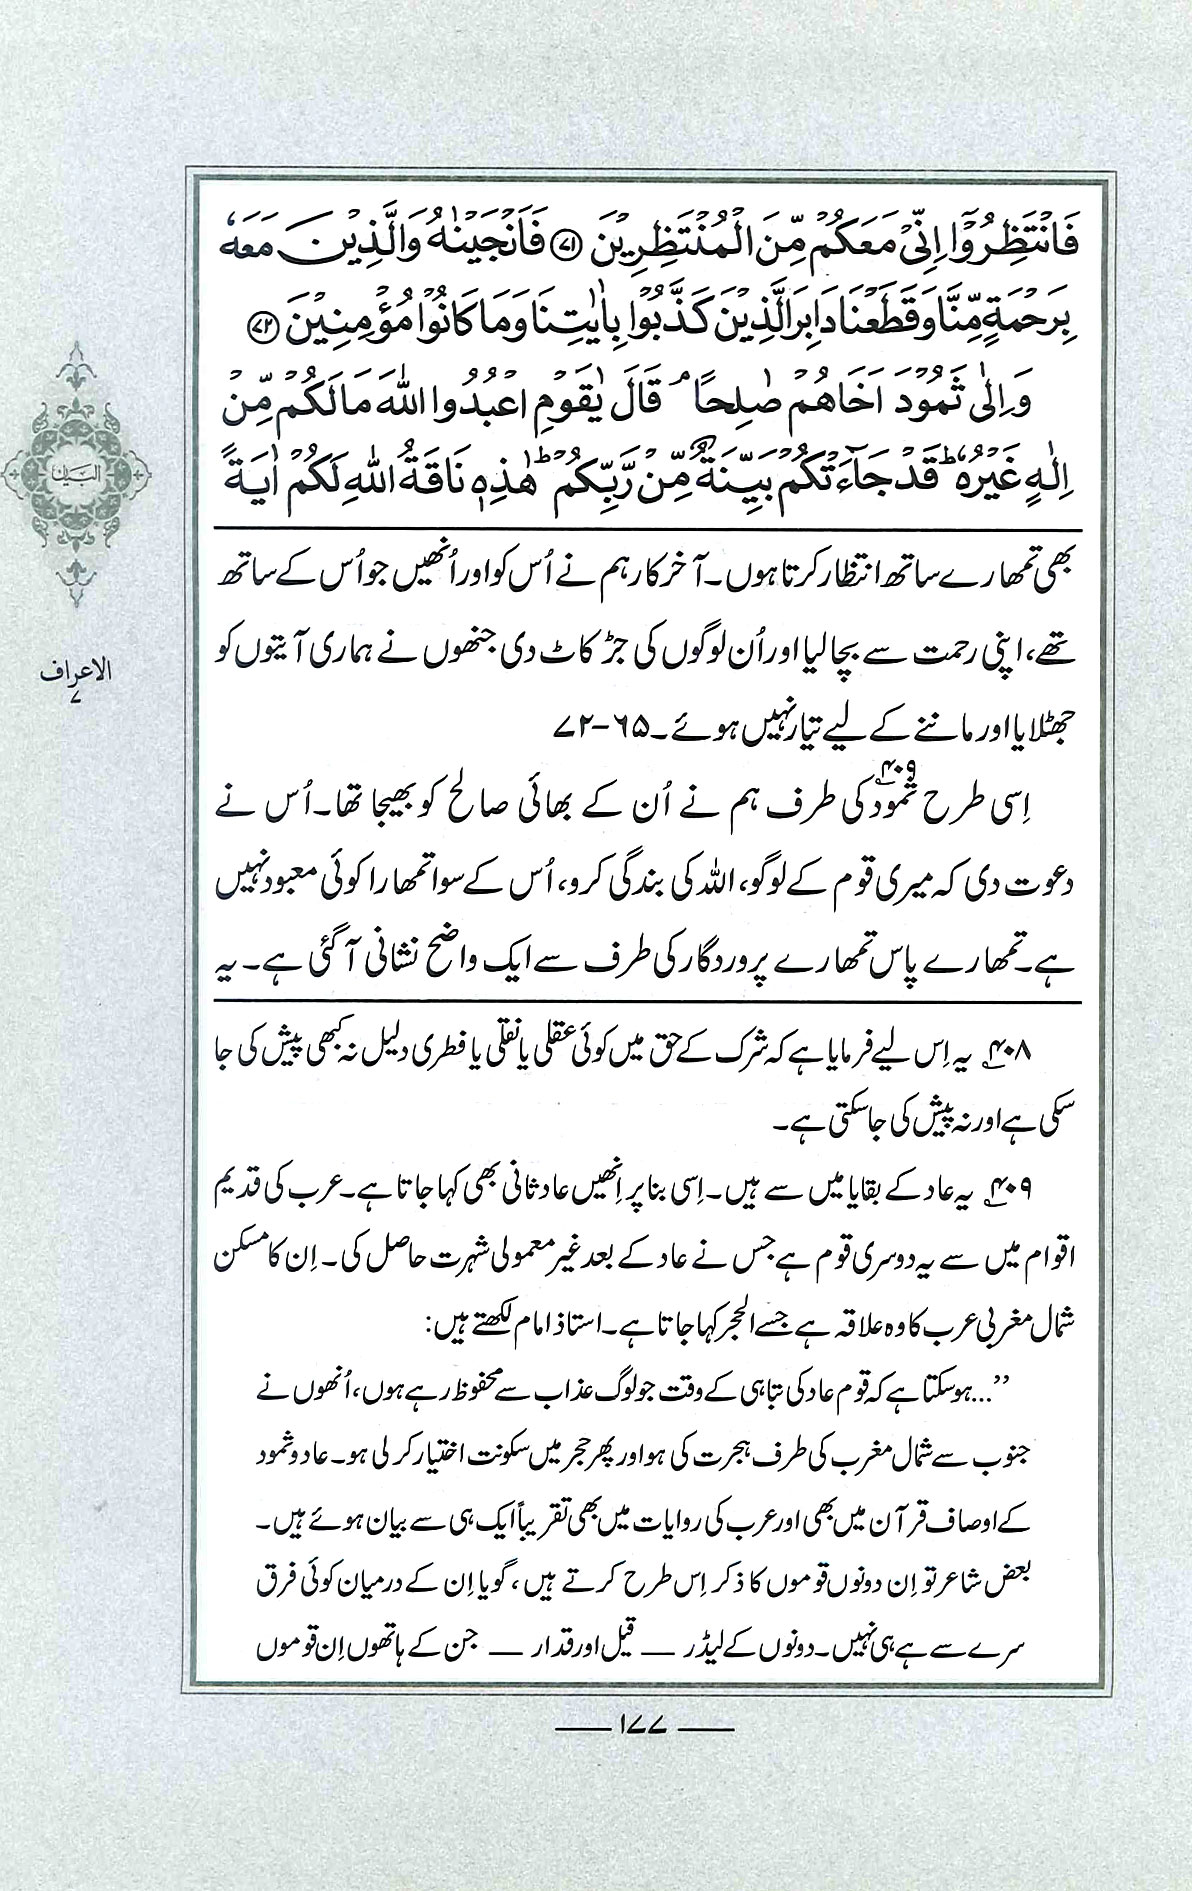 فَانْتَظِرُوْٓا اِنِّیْ مَعَکُمْ مِّنَ الْمُنْتَظِرِیْنَ ﴿۷۱﴾ فَاَنْجَیْنٰهُ وَالَّذِیْنَ مَعَهٗ
بِرَحْمَةٍ مِّنَّا وَقَطَعْنَا دَابِرَ الَّذِیْنَ کَذَّبُوْا بِاٰیٰتِنَا وَمَا کَانُوْا مُؤْمِنِیْنَ ﴿۷۲﴾
وَاِلٰی ثَمُوْدَ اَخَاهُمْ صٰلِحًا ۘ قَالَ یٰقَوْمِ اعْبُدُوا اللّٰهَ مَا لَکُمْ مِّنْ
اِلٰهٍ غَیْرُهٗ ؕ قَدْ جَآءَتْکُمْ بَیِّنَةٌ مِّنْ رَّبِّکُمْ ؕ هٰذِهٖ نَاقَةُ اللّٰهِ لَکُمْ اٰیَةً
بھی تمھارے ساتھ انتظار کرتا ہوں۔ آخرکار ہم نے اُس کو اور اُنھیں جو اُس کے ساتھ
تھے، اپنی رحمت سے بچا لیا اور اُن لوگوں کی جڑ کاٹ دی جنھوں نے ہماری آیتوں کو
جھٹلایا اور ماننے کے لیے تیار نہیں ہوئے۔ ۶۵-۷۲
اِسی طرح ثمود۴۰۹ کی طرف ہم نے اُن کے بھائی صالح کو بھیجا تھا۔ اُس نے
دعوت دی کہ میری قوم کے لوگو، اللہ کی بندگی کرو، اُس کے سوا تمھارا کوئی معبود نہیں
ہے۔ تمھارے پاس تمھارے پروردگار کی طرف سے ایک واضح نشانی آ گئی ہے۔ یہ
۴۰۸ یہ اِس لیے فرمایا ہے کہ شرک کے حق میں کوئی عقلی یا نقلی یا فطری دلیل نہ کبھی پیش کی جا
سکی ہے اور نہ پیش کی جا سکتی ہے۔
۴۰۹ یہ عاد کے بقایا میں سے ہیں۔ اِسی بنا پر اِنھیں عاد ثانی بھی کہا جاتا ہے۔ عرب کی قدیم
اقوام میں سے یہ دوسری قوم ہے جس نے عاد کے بعد غیر معمولی شہرت حاصل کی۔ اِن کا مسکن
شمال مغربی عرب کا وہ علاقہ ہے جسے الحجر کہا جاتا ہے۔ استاذ امام لکھتے ہیں:
’’...ہو سکتا ہے کہ قوم عاد کی تباہی کے وقت جو لوگ عذاب سے محفوظ رہے ہوں، اُنھوں نے
جنوب سے شمال مغرب کی طرف ہجرت کی ہو اور پھر حجر میں سکونت اختیار کر لی ہو۔ عاد و ثمود
کے اوصاف قرآن میں بھی اور عرب کی روایات میں بھی تقریباً ایک ہی سے بیان ہوئے ہیں۔
بعض شاعر تو اِن دونوں قوموں کا ذکر اِس طرح کرتے ہیں، گویا اِن کے درمیان کوئی فرق
سرے سے ہے ہی نہیں۔ دونوں کے لیڈر — قیل اور قدار — جن کے ہاتھوں اِن قوموں
البیان
الاعراف
۷
— ۱۷۷ —